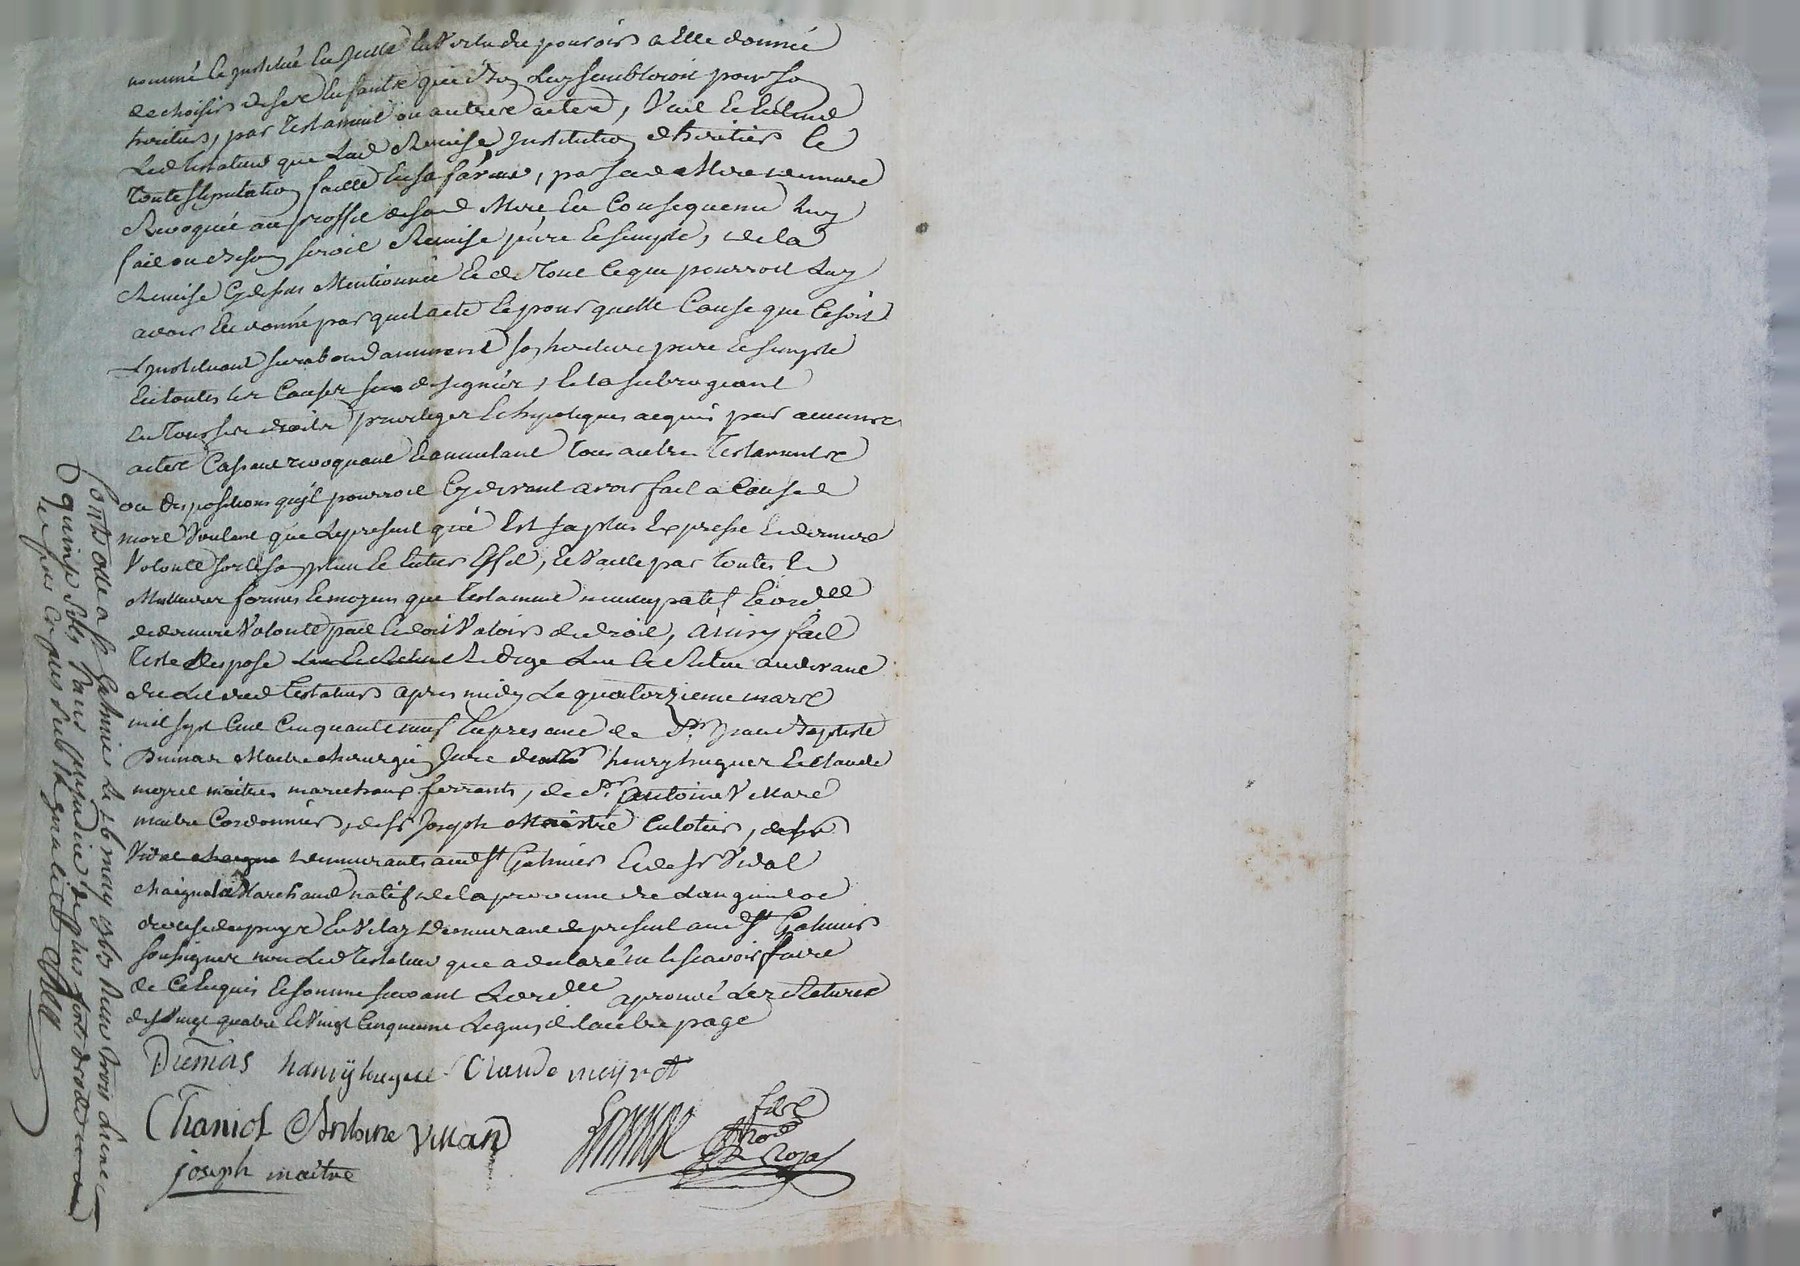 nommé et institué en icelle en vertu du pouvoir a elle donnée
de choisir de ses enfants que bon luy sembleroit pour son
heritier, par testament ou autres actes, veut et entend
ledt testateur que lad remise institution d'heritier et
toute stipulation faitte en sa faveur, par sad mere demeure
Revoquée au proffit de sad mere en consequence luy
fait ou besoin seroit Remise pure et simple, de la
Remise cy dessus mentionnée et de tout ce que pourroit luy
avoir été donné par quel acte et pour quelle cause que ce soit
L'instituant surabondamment son heritiere pure et simple
en toutes les causes sus designées, et la subrogeant
en tous ses droits privileges et hypoteques acquis par
actes cassant revoquant et annulant tous autres testaments
ou dispositions qu'il pourroit cy devant avoir fait a cause de
mort voulant que le present qui est sa plus expresse et derniere
volonté sorte son plein et entier effet, et vaille par toutes les
meilleures formes et moyens que testament nuncupatif et ord.lle
de derniere volonté peut et doit valoir de droit, ainsy fait
testé disposé redigé leu et releu au devant
du lit dud testateur apres midy le quatorzieme mars
mil sept cent cinquante neuf en presence de Sr. Jean Baptiste
Dumas Maitre chirurgien juré henry hugues et Claude
meyret maitres marechaux ferrants, de Sr. antoine Villard
maitre Cordonnier, de Sr Joseph Maitre culotier, de Sr
Vidal demeurants aud St Galmier et de Sr Vidal
Marchand natif de la province de Languedoc
diocese du puy en Velay demeurant de present aud St Galmier
soussignez non led testateur que a declaré ne le scavoir faire
de ce enquis et sommé suivant l'ord.ce approuvé les ratures
des vingt quatre et vingt cinquieme lignes de l'autre page
Dumas hanry hugue Claude meyret
Chaniol Antoine Villard
joseph maitre
Controllé a St Galmier le 26 may 1760 Receu trois livres
quinze sols sans prejudice de plus fort droit